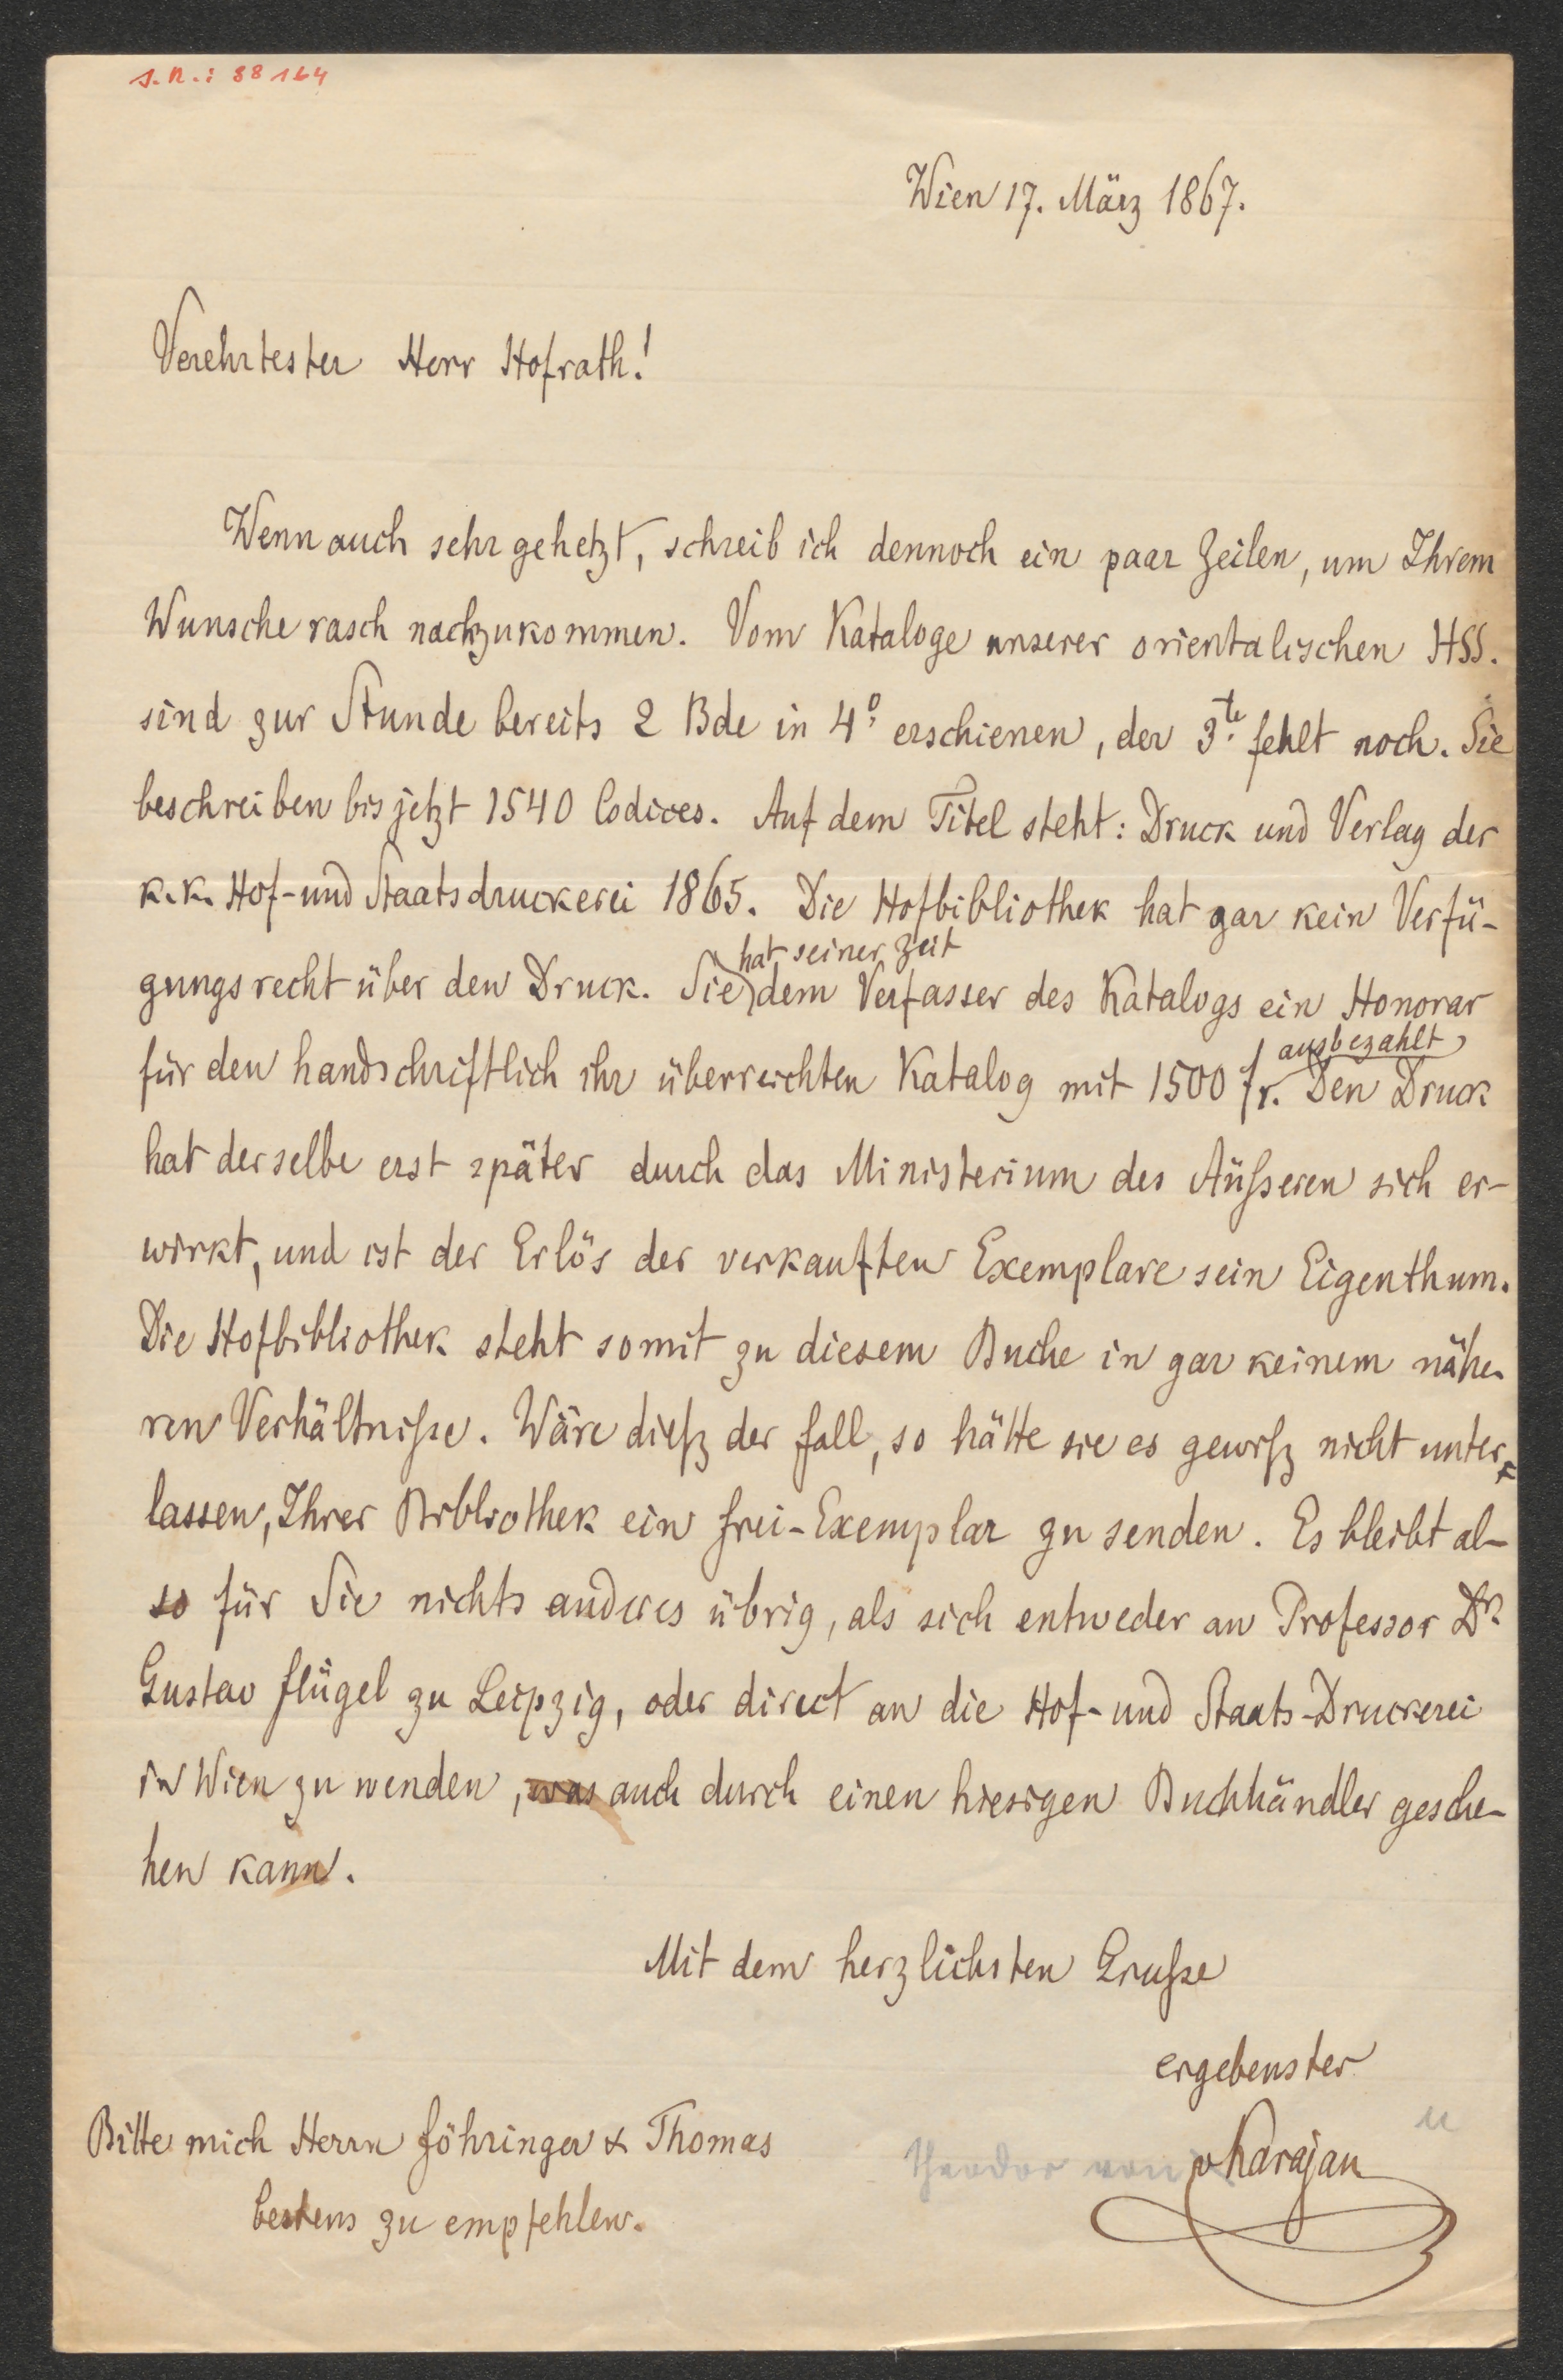 J. N.: 88164
Wien 17. März 1867.
Verehrtester Herr Hofrath!
Wenn auch sehr gehetzt, schreib ich dennoch ein paar Zeilen, um Ihrem
Wunsche rasch nachzukommen. Vom Kataloge unserer orientalischen HSS.
sind zur Stunde bereits 2 Bde in 4º erschienen, der 3te fehlt noch. Sie
beschreiben bis jetzt 1540 Codices. Auf dem Titel steht: Druck und Verlag der
k.k. Hof- und Staatsdruckerei 1865. Die Hofbibliothek hat gar kein Verfü-
hat seiner Zeit
gungsrecht über den Druck. Sie dem Verfasser des Katalogs ein Honorar
ausbezahlt
für den handschriftlich ihr überreichten Katalog mit 1500 fr. Den Druck
hat derselbe erst später durch das Ministerium des Äußeren sich er-
wirkt, und ist der Erlös der verkauften Exemplare sein Eigenthum.
Die Hofbibliothek steht somit zu diesem Buche in gar keinem nähe-
ren Verhältniße. Wäre dieß der Fall, so hätte sie es gewiß nicht unter-
lassen, Ihrer Bibliothek ein Frei-Exemplar zu senden. Es bleibt al-
so für Sie nichts anderes übrig, als sich entweder an Professor Dr.
Gustav Flügel zu Leipzig, oder direct an die Hof- und Staats-Druckerei
in Wien zu wenden, was auch durch einen hiesigen Buchhändler gesche-
hen kann.
Mit dem herzlichsten Gruße
ergebenster
Theodor von vKarajan
Bitte mich Herrn Föhringer & Thomas
bestens zu empfehlen.